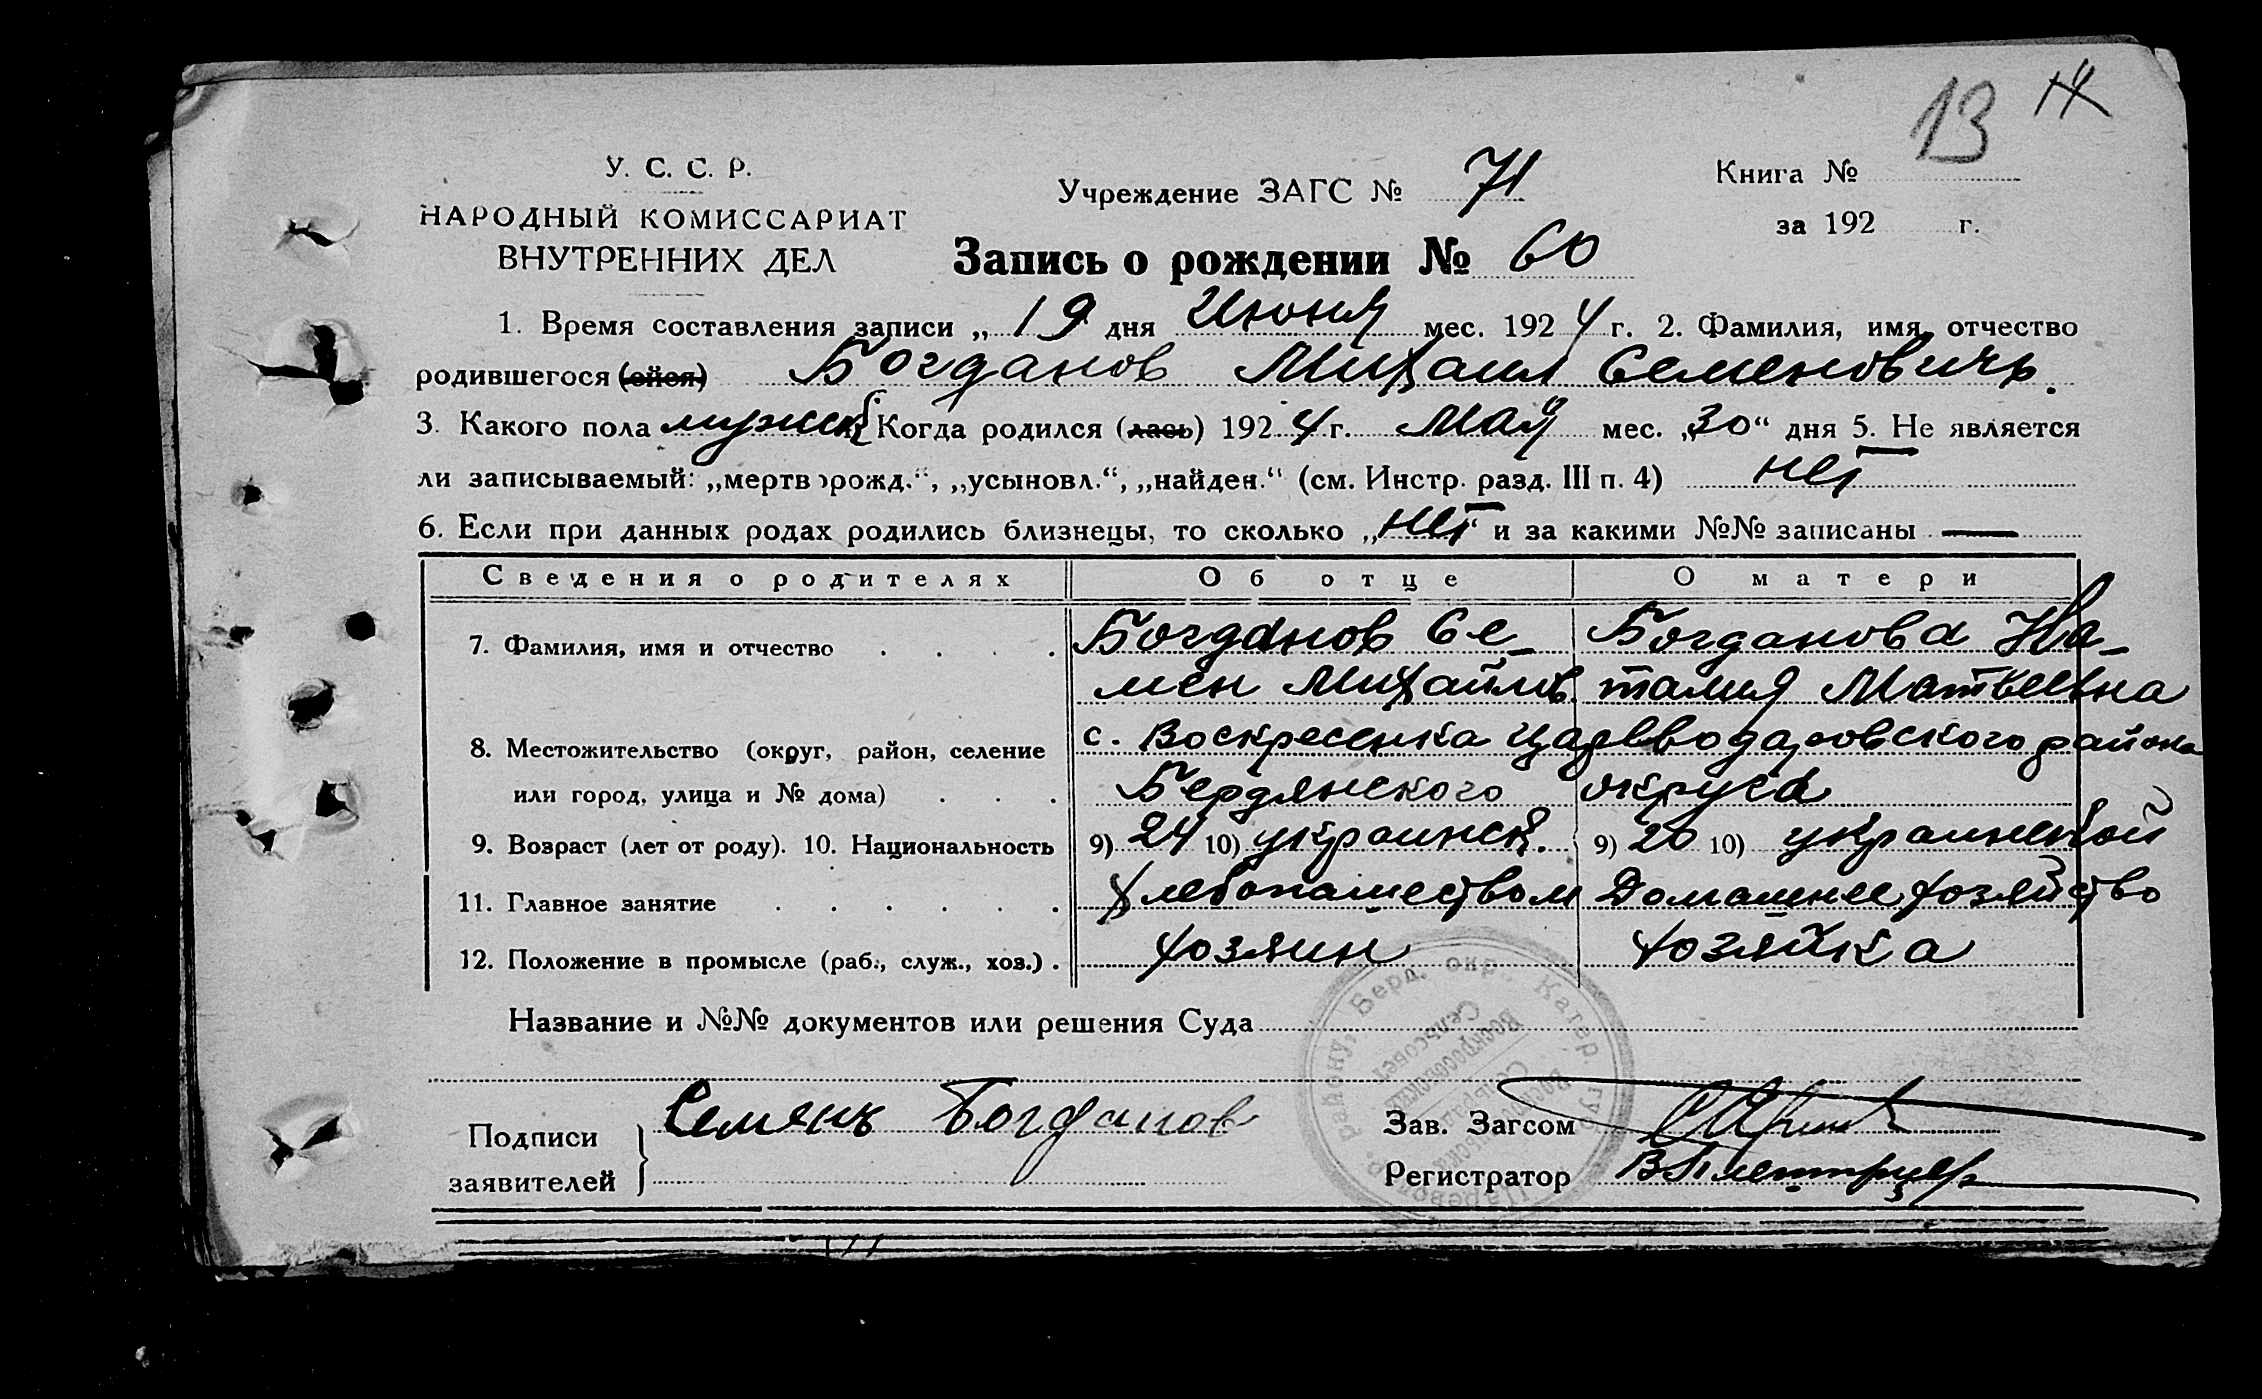 13 14
У. С. С. Р.
НАРОДНЫЙ КОМИССАРИАТ
ВНУТРЕННИХ ДЕЛ
Учреждение ЗАГС № 71
Книга №
за 192 г.
Запись о рождении № 60
1. Время составления записи „ 19 дня Июня мес. 1924 г. 2. Фамилия, имя, отчество
родившегося (ейся) Богданов Михаил Семеновичь.
3. Какого пола мужск Когда родился (лась) 1924 г. Май мес. „30“ дня 5. Не является
ли записываемый: „мертворожд.“, „усыновл.“, „найден.“ (см. Инстр. разд. III п. 4) нет
6. Если при данных родах родились близнецы, то сколько „нет“ и за какими №№ записаны —
Сведения о родителях Об отце О матери
7. Фамилия, имя и отчество . . . . Богданов Се- Богданова На-
мен Михайлов. талия Матвеевна
8. Местожительство (округ, район, селение с. Воскресенка Царевводаровского района
или город, улица и № дома) . . . Бердянского округа
9. Возраст (лет от роду). 10. Национальность 9) 24 10) украинск. 9) 20 10) украинской
11. Главное занятие . . . . . . Хлебопашеством Домашнее хозяйство
12. Положение в промысле (раб., служ., хоз.) . хозяин хозяйка
Название и №№ документов или решения Суда
Берд. окр., Катер. губ.
Сельсовет
Подписи
заявителей
Семянъ Богданов
Зав. Загсом
Регистратор